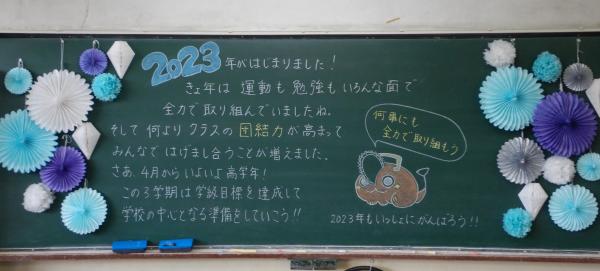 2023年がはじまりました！
きょ年は 運動も 勉強も いろんな面で
全力で取り組んでいましたね。
そして 何より クラスの 団結力 が 高まって
みんなで はげまし合うことが増えました。
さあ、4月から いよいよ 高学年！
この3学期は 学級目標を 達成して
学校の中心となる準備をしていこう!!
何事にも
全力で取り組もう
2023年もいっしょにがんばろう!!